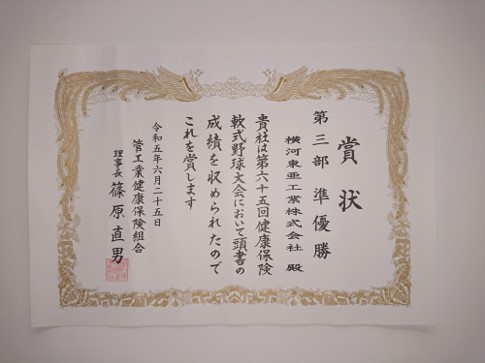 賞状
第三部 準優勝
横河東亜工業株式会社 殿
貴社は第六十五回健康保険
軟式野球大会において頭書の
成績を収められたので
これを賞します
令和五年六月二十五日
管工業健康保険組合
理事長 篠原直男